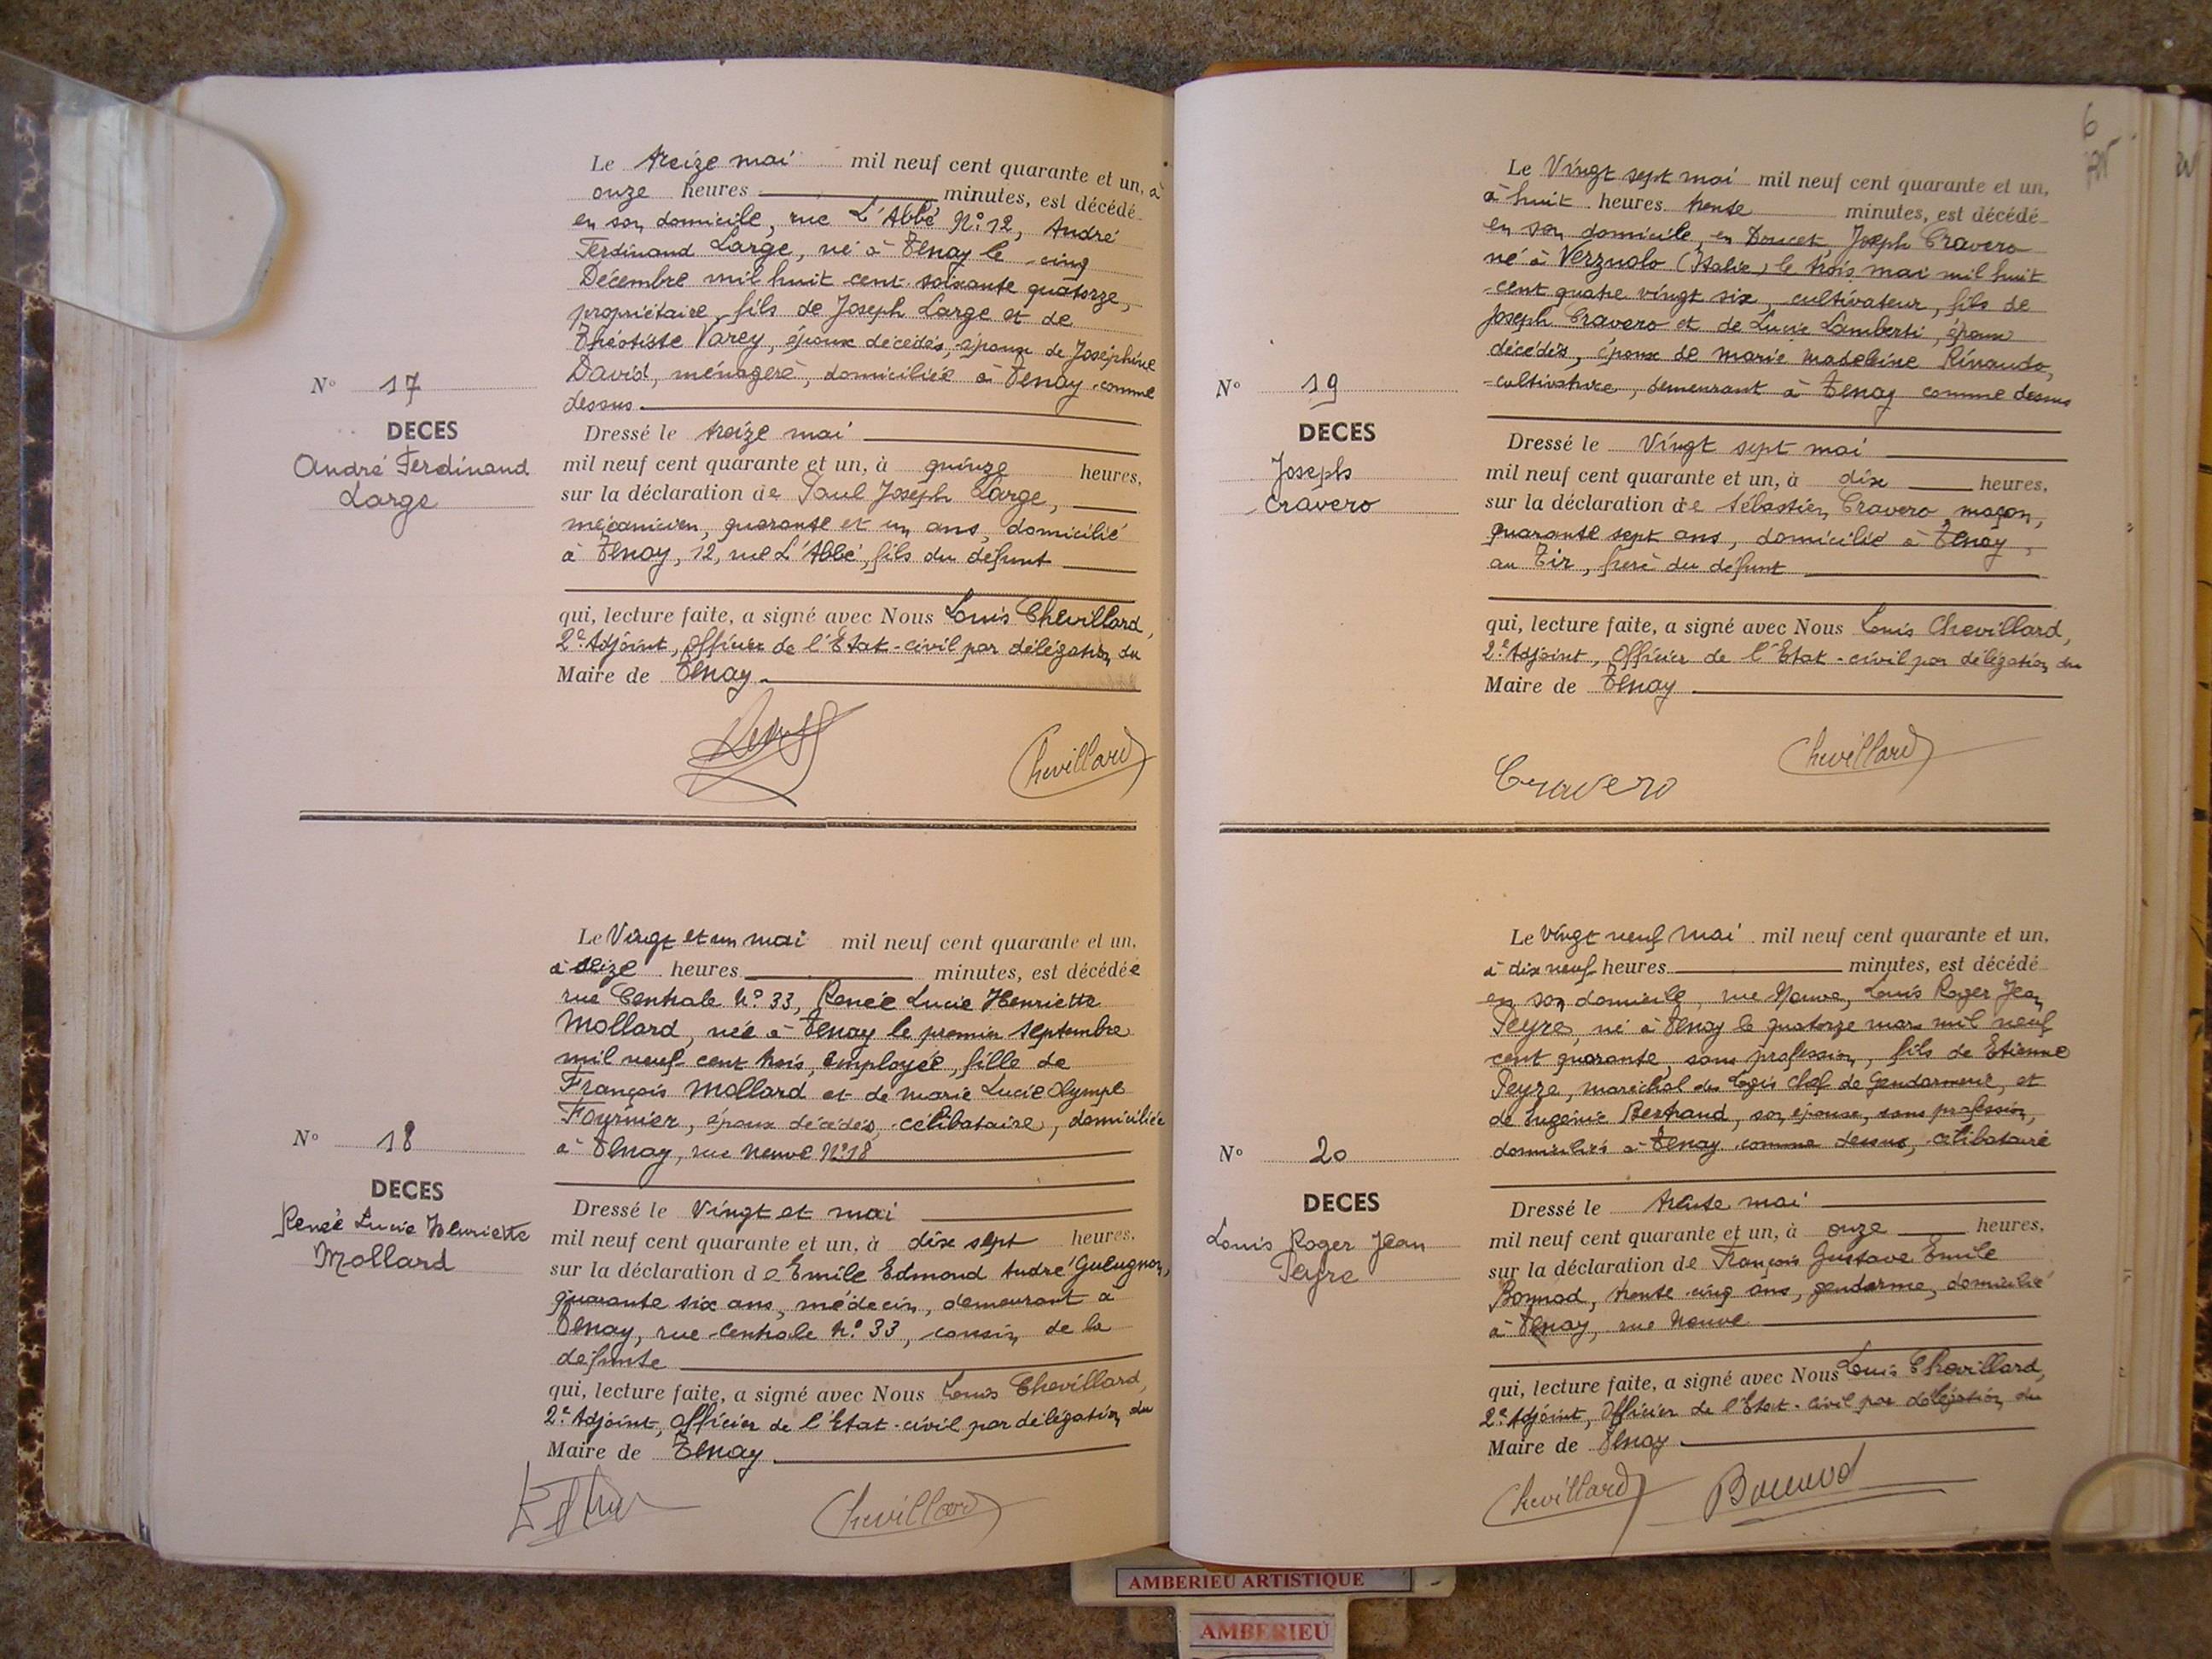 Le treize mai mil neuf cent quarante et un, à
onze heures minutes, est décédé
en son domicile, rue L'Abbé N° 12, André
Ferdinand Large, né à Tenay le cinq
Décembre mil huit cent soixante quatorze,
propriétaire, fils de Joseph Large et de
Théotiste Varey, époux décédés, époux de Joséphine
David, ménagère, domiciliée à Tenay comme
dessus.
N° 17
DECES
André Ferdinand
Large
Dressé le treize mai
mil neuf cent quarante et un, à quinze heures,
sur la déclaration de Paul Joseph Large,
mécanicien, quarante et un ans, domicilié
à Tenay, 12, rue L'Abbé, fils du défunt
qui, lecture faite, a signé avec Nous Louis Chevillard,
2e Adjoint, Officier de l'Etat-civil par délégation du
Maire de Tenay.
Chevillard
Le Vingt et un mai mil neuf cent quarante et un,
à seize heures minutes, est décédée
rue Centrale N° 33, Renée Lucie Henriette
Mollard, née à Tenay le premier Septembre
mil neuf cent trois, employée, fille de
François Mollard et de Marie Lucie Olympe
Fournier, époux décédés, célibataire, domiciliée
à Tenay, rue Neuve N° 18
N° 18
DECES
Renée Lucie Henriette
Mollard
Dressé le Vingt et mai
mil neuf cent quarante et un, à dix sept heures,
sur la déclaration de Emile Edmond André Gueugnon,
quarante six ans, médecin, demeurant à
Tenay, rue Centrale N° 33, cousin de la
défunte
qui, lecture faite, a signé avec Nous Louis Chevillard,
2e Adjoint, Officier de l'Etat-civil par délégation du
Maire de Tenay
Chevillard
6
Le Vingt sept mai mil neuf cent quarante et un,
à huit heures trente minutes, est décédé
en son domicile, en Doucet, Joseph Cravero
né à Verzuolo (Italie) le trois mai mil huit
cent quatre vingt six, cultivateur, fils de
Joseph Cravero et de Lucie Lamberti, époux
décédés, époux de Marie Madeleine Rinaudo,
cultivatrice, demeurant à Tenay comme dessus
N° 19
DECES
Joseph
Cravero
Dressé le Vingt sept mai
mil neuf cent quarante et un, à dix heures,
sur la déclaration de Sébastien Cravero, maçon,
quarante sept ans, domicilié à Tenay,
au Tir, frère du défunt
qui, lecture faite, a signé avec Nous Louis Chevillard,
2e Adjoint, Officier de l'Etat-civil par délégation du
Maire de Tenay
Cravero Chevillard
Le Vingt neuf mai mil neuf cent quarante et un,
à dix neuf heures minutes, est décédé
en son domicile, rue Neuve, Louis Roger Jean
Peyre, né à Tenay le quatorze mars mil neuf
cent quarante, sans profession, fils de Etienne
Peyre, maréchal des Logis Chef de Gendarmerie, et
de Eugénie Bertrand, son épouse, sans profession,
domiciliés à Tenay comme dessus, célibataire
N° 20
DECES
Louis Roger Jean
Peyre
Dressé le trente mai
mil neuf cent quarante et un, à onze heures,
sur la déclaration de François Gustave Emile
Bonnod, trente cinq ans, gendarme, domicilié
à Tenay, rue Neuve
qui, lecture faite, a signé avec Nous Louis Chevillard,
2e Adjoint, Officier de l'Etat-civil par délégation du
Maire de Tenay
Chevillard Bonnod
AMBERIEU ARTISTIQUE
AMBERIEU